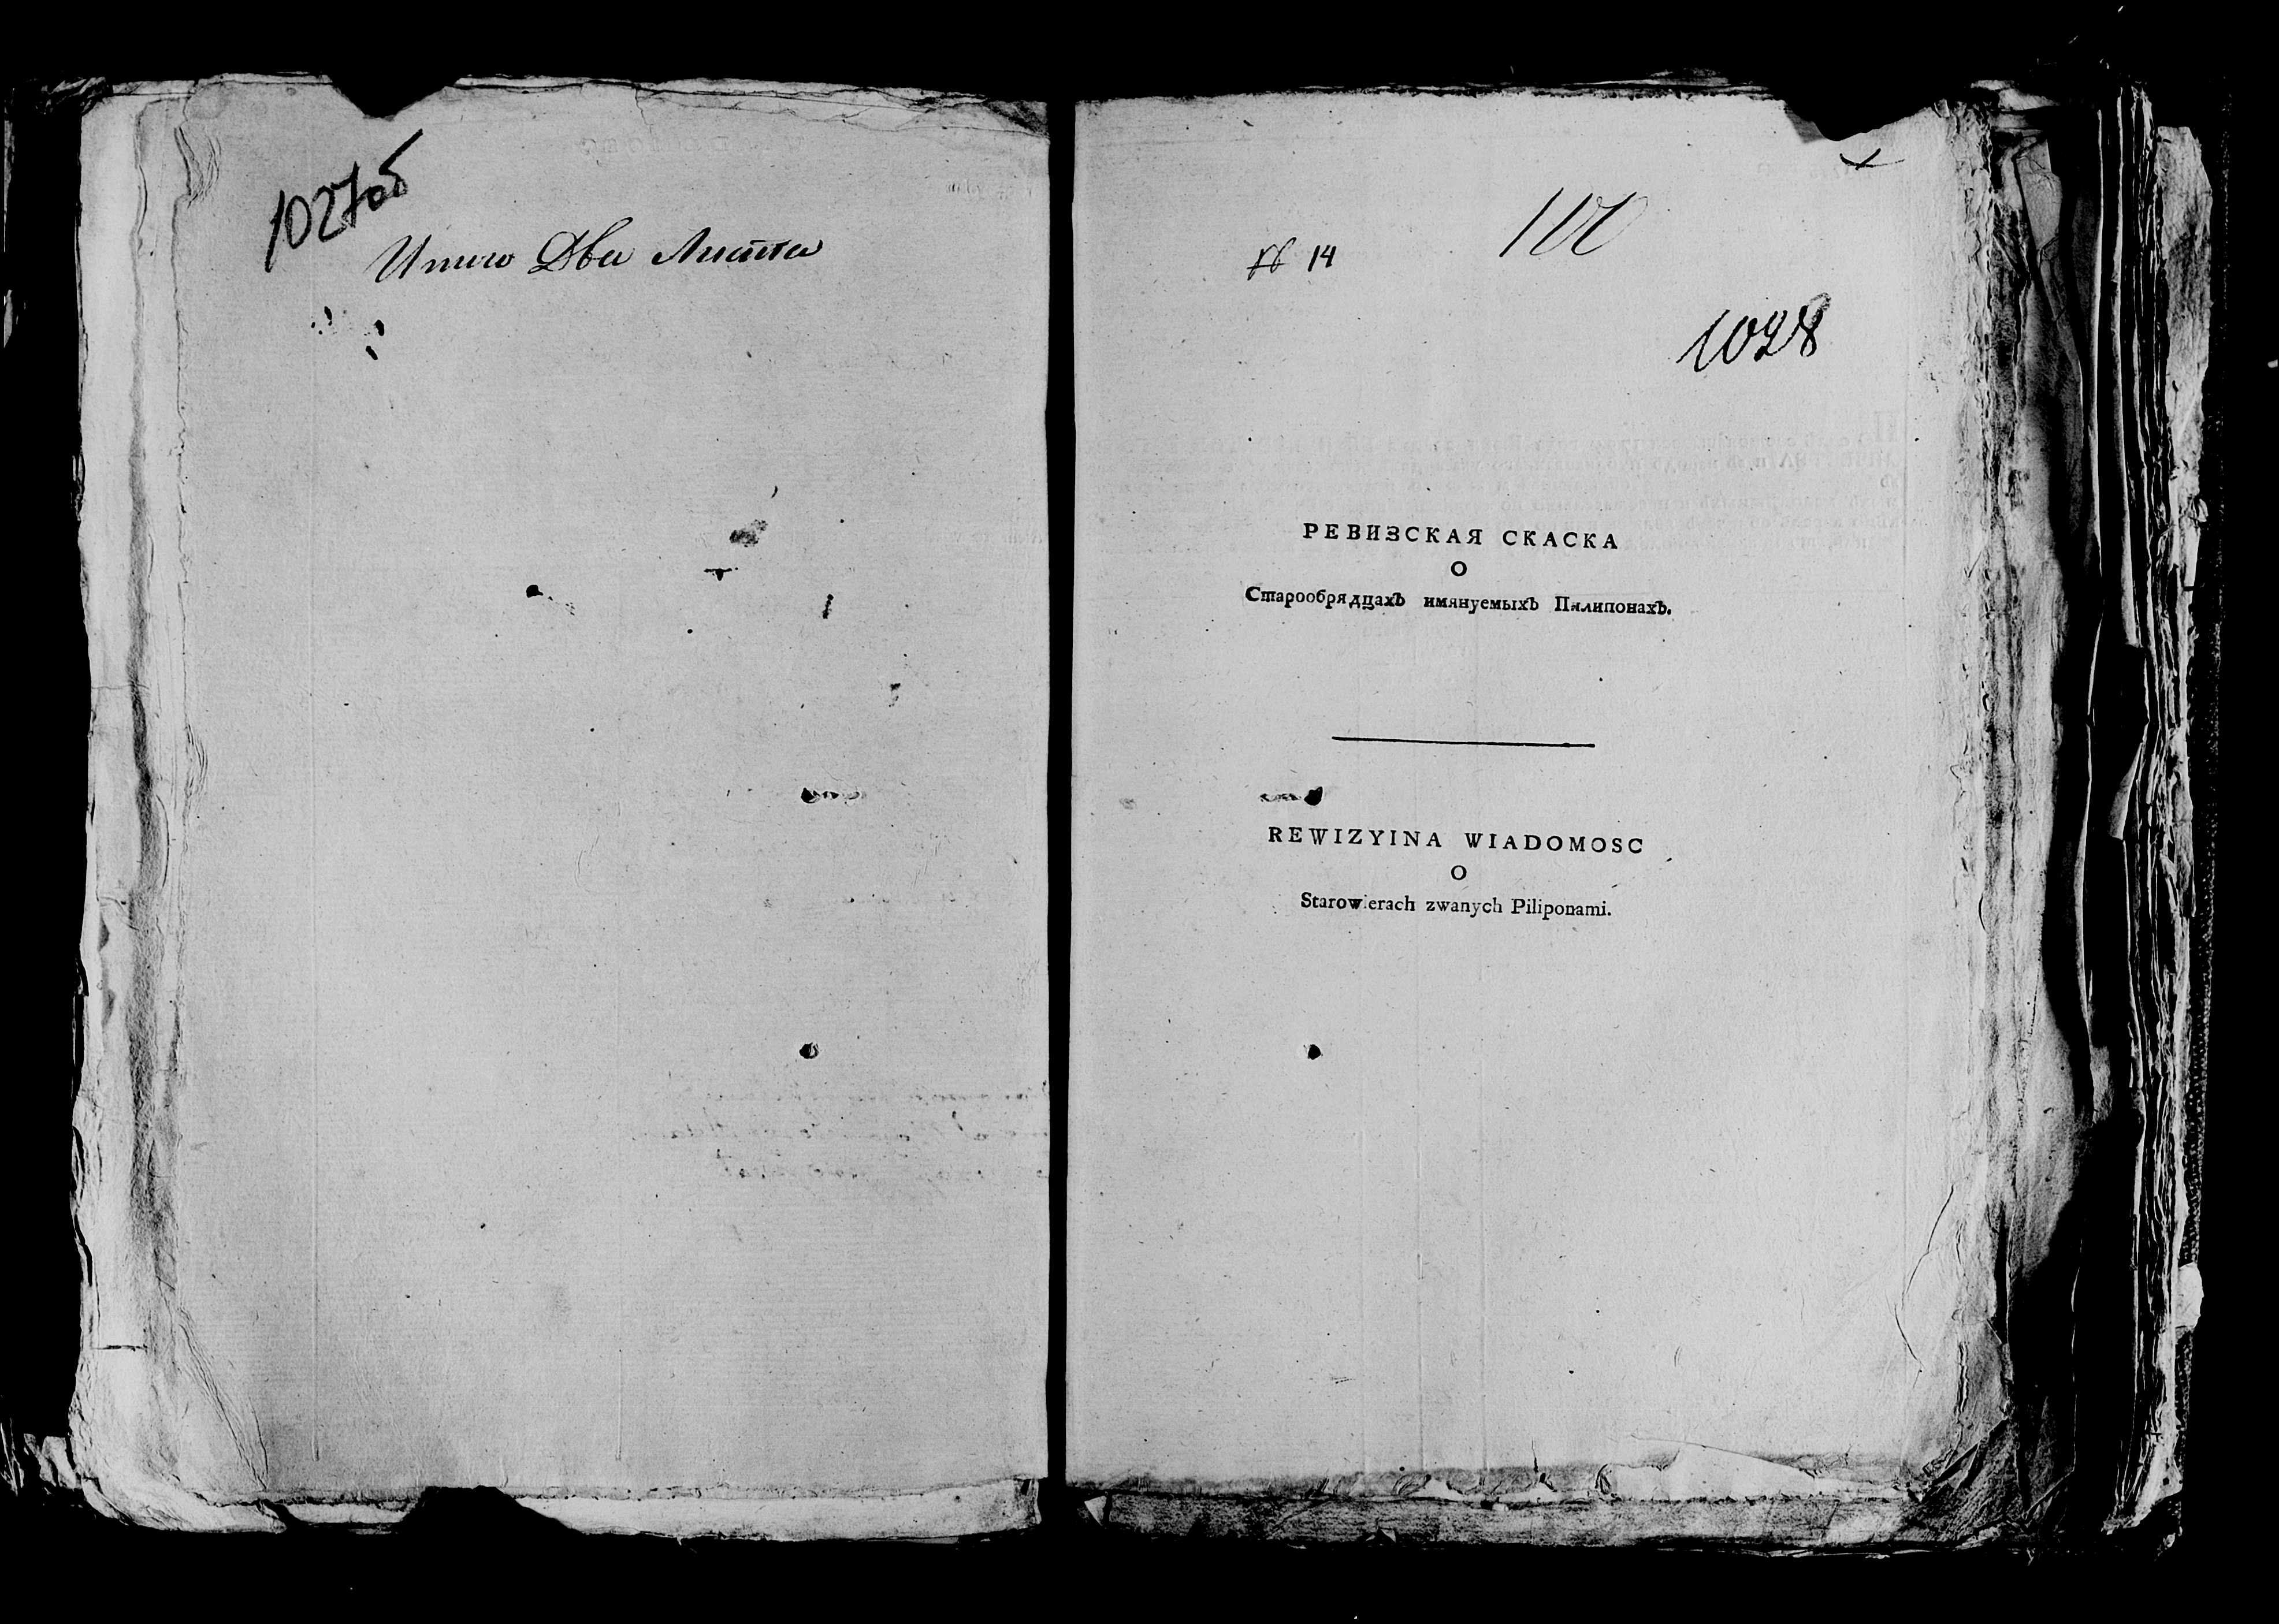 1027об
Итого Два Листа
14
100
1028
РЕВИЗСКАЯ СКАСКА
О
Старообрядцахъ имянуемыхъ Пилипонахъ.
REWIZYINA WIADOMOSC
O
Starowierach zwanych Piliponami.